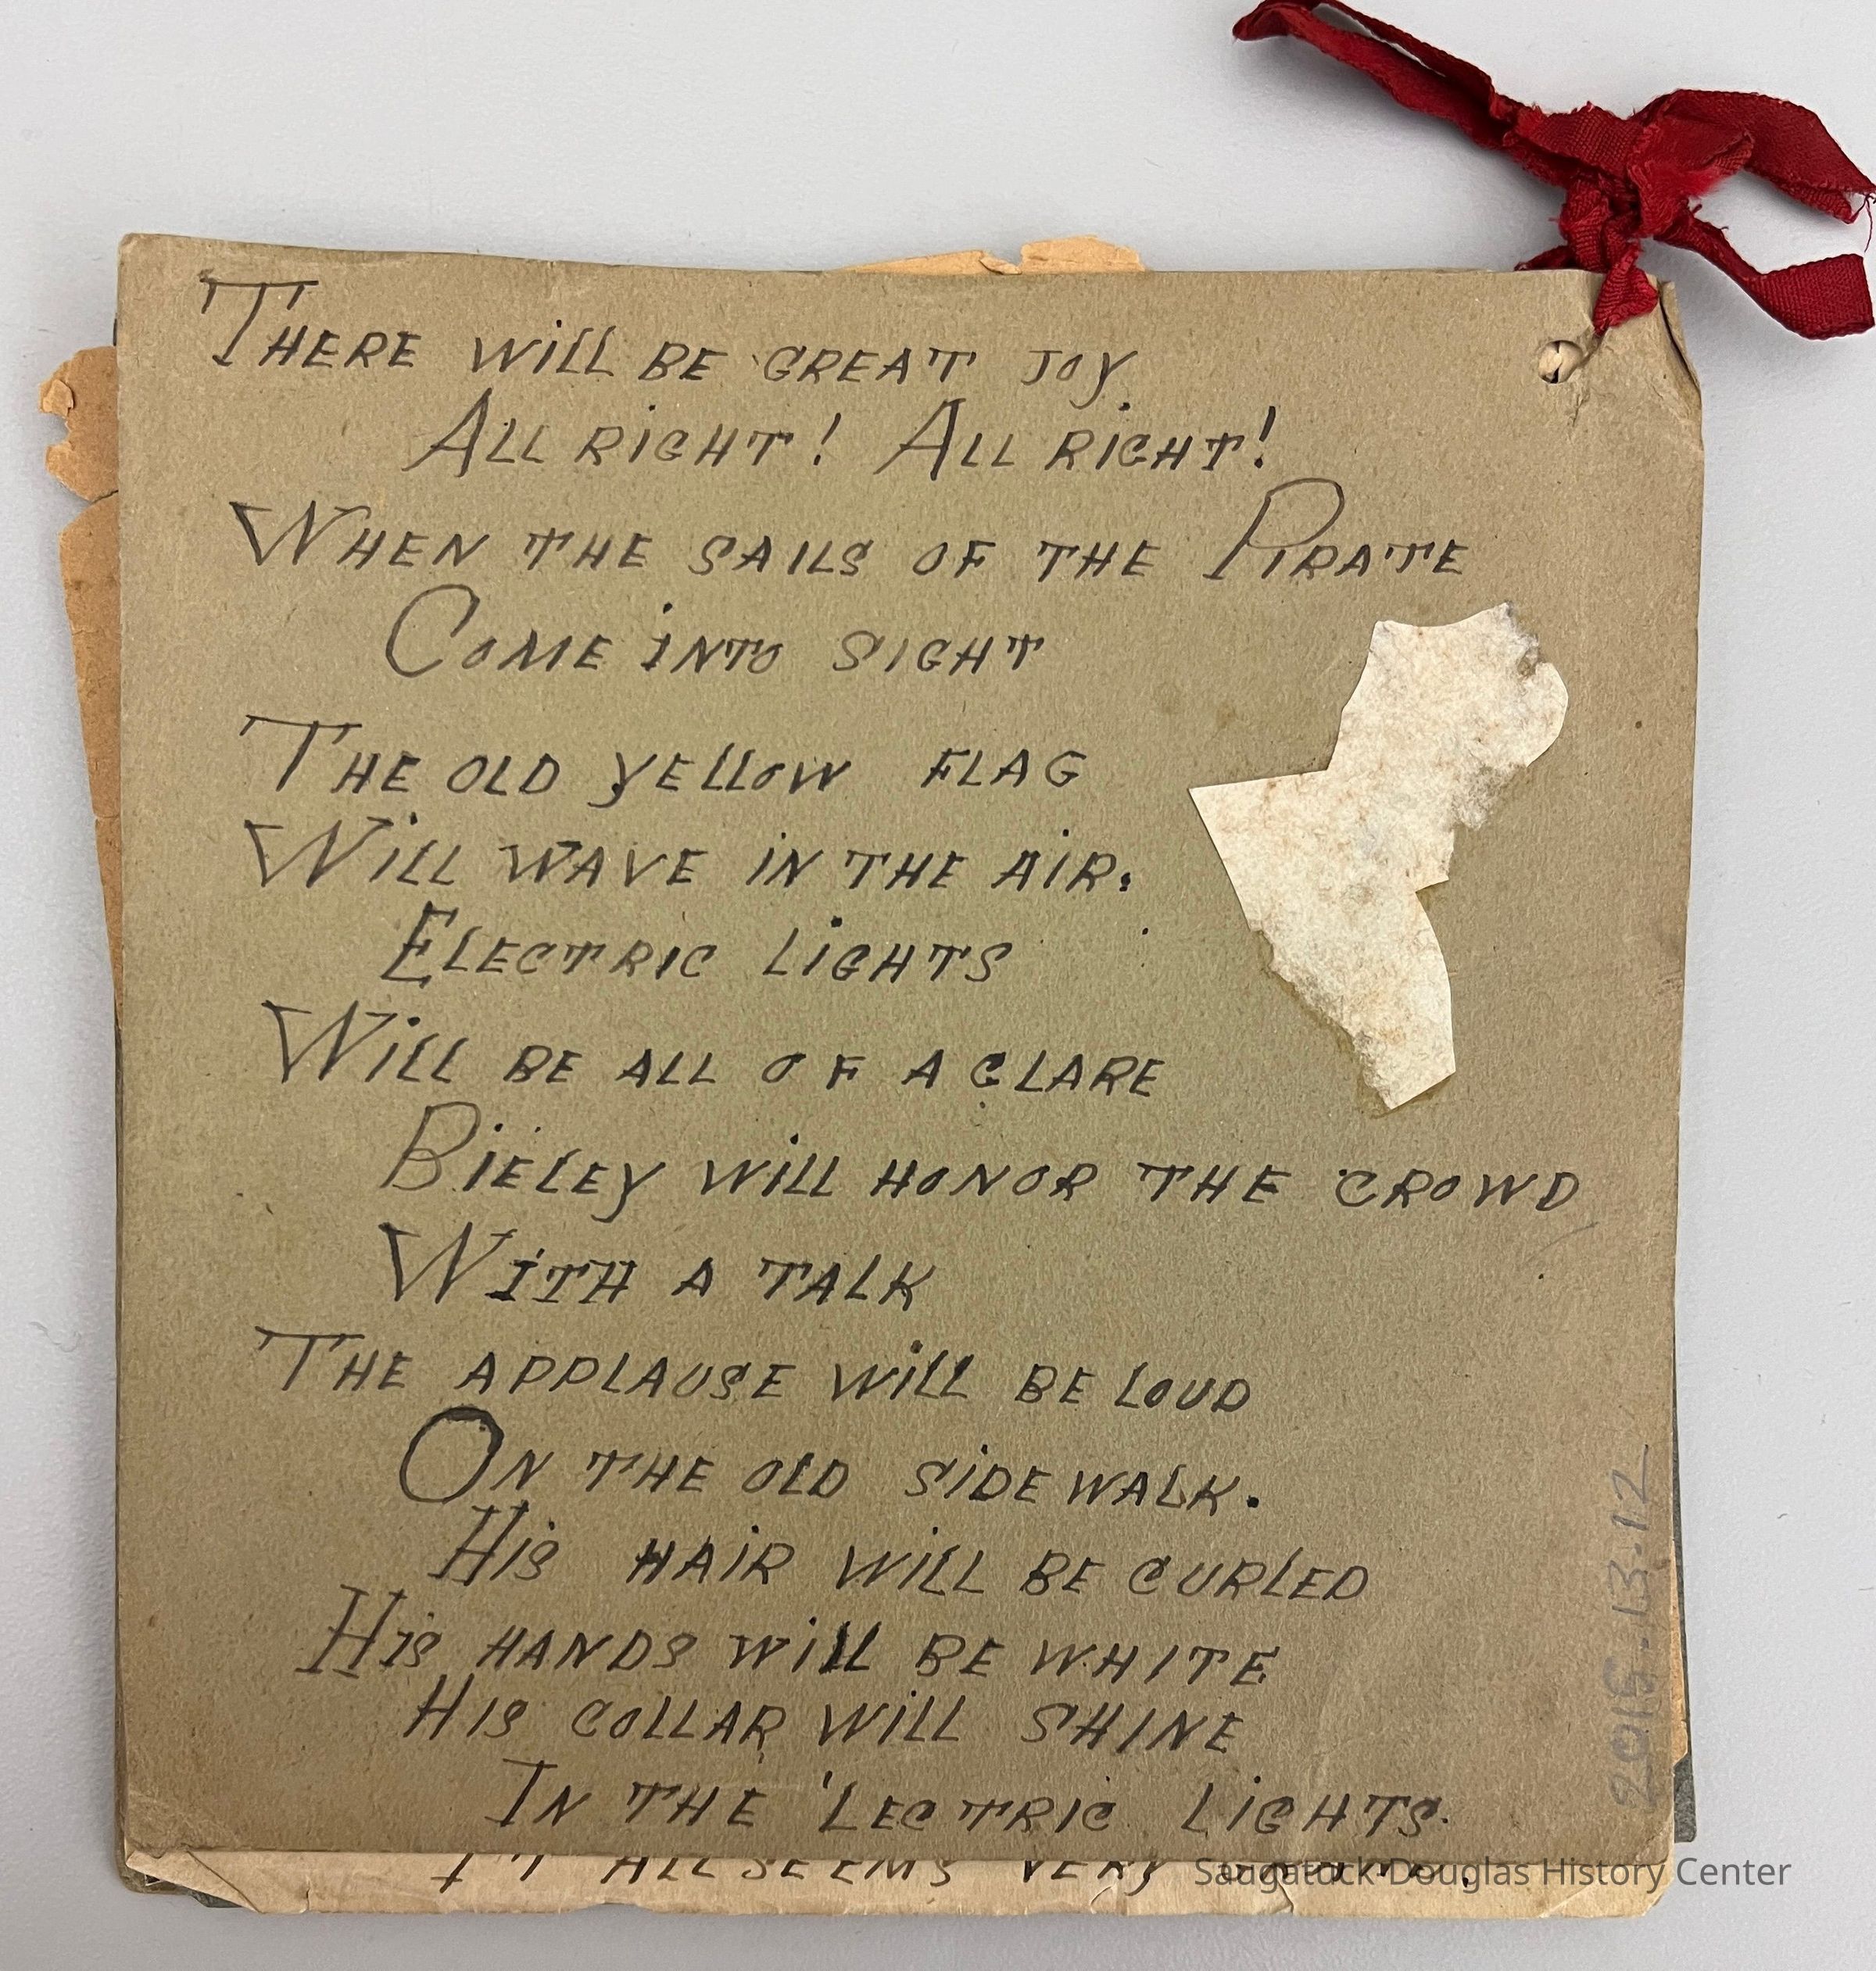 There will be great joy
All right! All right!
When the sails of the Pirate
Come into sight
The old yellow flag
Will wave in the air.
Electric lights
Will be all of a glare
Bieley will honor the crowd
With a talk
The applause will be loud
On the old sidewalk.
His hair will be curled
His hands will be white
His collar will shine
In the 'lectric lights.
It all seems very
2015.13.12
Saugatuck-Douglas History Center